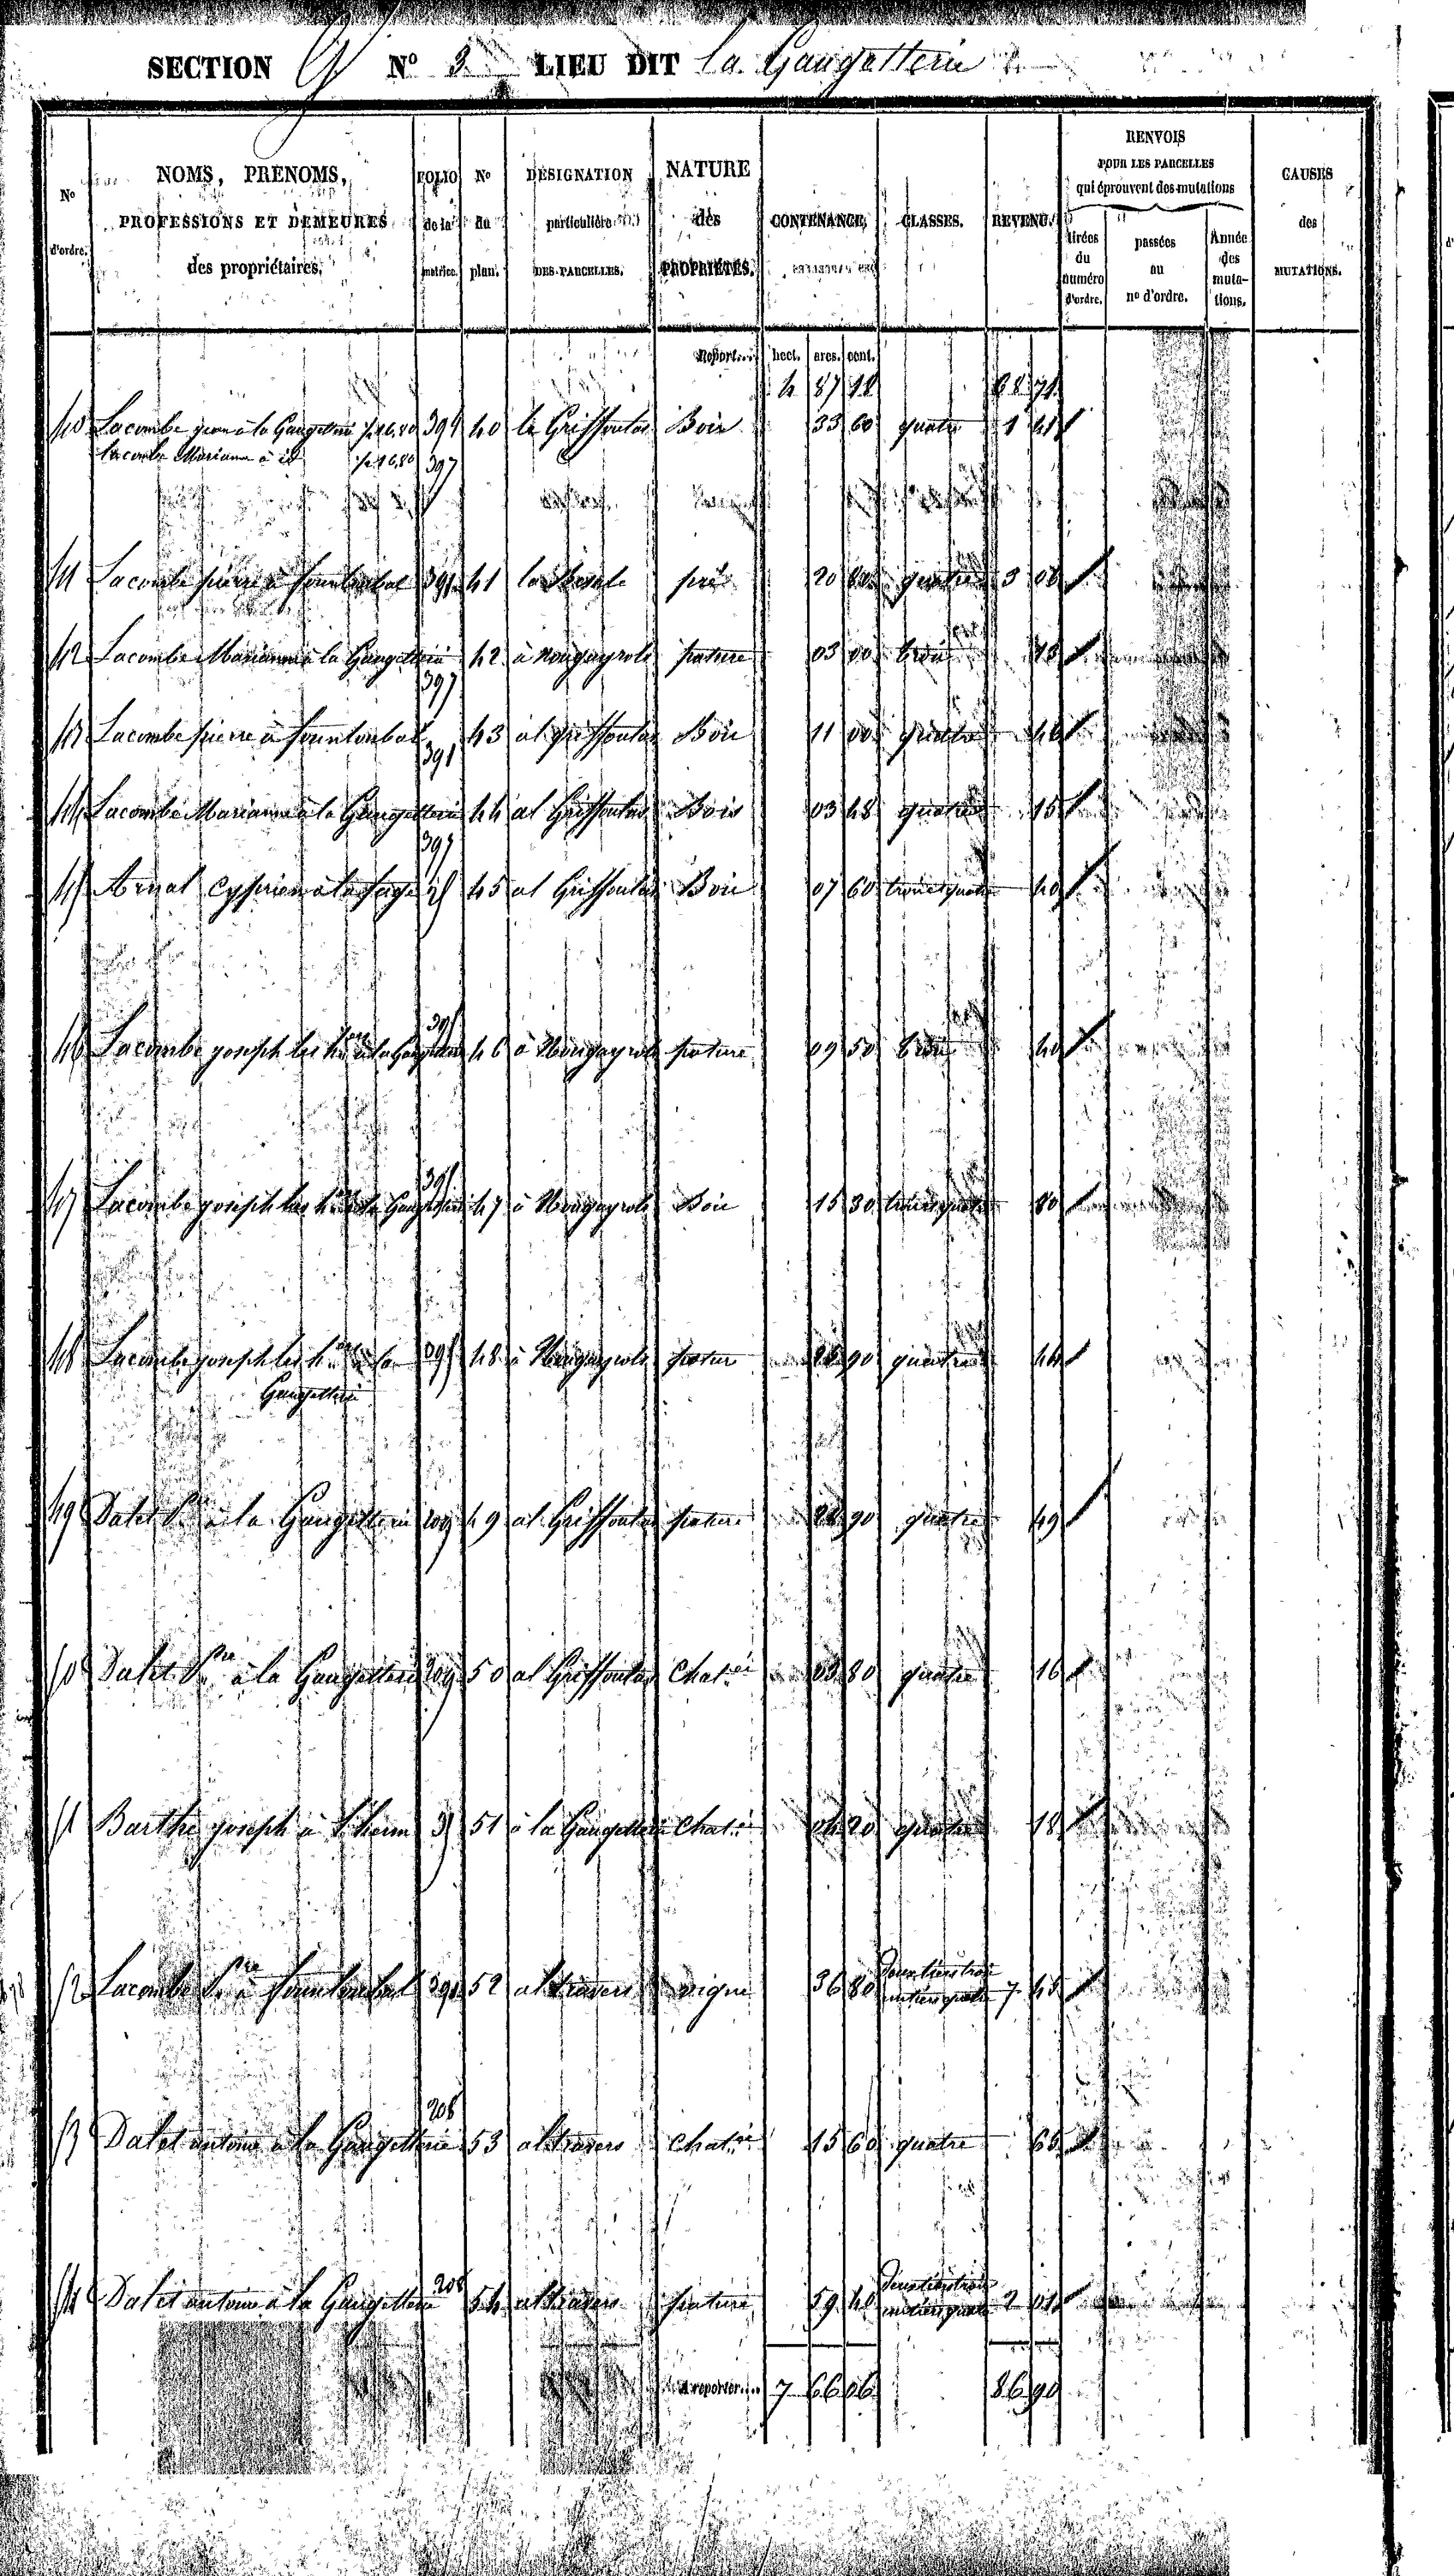 SECTION G N° 3 LIEU DIT la Gaugetterie
N° d'ordre.
NOMS, PRÉNOMS,
PROFESSIONS ET DEMEURES
des propriétaires.
FOLIO de la matrice.
N° du plan.
DÉSIGNATION particulière DES PARCELLES.
NATURE des PROPRIÉTÉS.
CONTENANCE
CLASSES.
REVENU.
RENVOIS
POUR LES PARCELLES
qui éprouvent des mutations
tirées du numéro d'ordre.
passées au n° d'ordre.
Année des mutations.
CAUSES des MUTATIONS.
Report... hect. ares. cent.
4 87 18 68 71
40 Lacombe jean à la Gaugetterie p. 16,80 394 40 le Griffoulas Bois 33 60 quatre 1 41
Lacombe Marianne à id p. 16,80 397
41 Lacombe pierre à 391 41 pré 20 quatre 3 08
42 Lacombe Marianne à la Gaugetterie 397 42 à Nougayrols pature 03 00 trois
43 Lacombe pierre à 391 43 al griffoulas Bois 11 00 quatre 46
44 Lacombe Marianne à la Gaugetterie 397 44 al Griffoulas Bois 03 48 quatre 15
45 Arnal Cyprien à la 45 al Griffoulas Bois 07 60 trois quatre 40
46 Lacombe joseph les à la Gaugetterie 395 46 à Nougayrols pature 09 50 trois 40
47 Lacombe joseph les à la Gaugetterie 395 47 à Nougayrols Bois 15 30 trois quatre 80
48 Lacombe joseph les à la 395 48 à Nougayrols patur 90 quatre 44
Gaugetterie
49 Dalet à la Gaugetterie 209 49 al Griffoulas pature 90 quatre 49
50 Dalet Pre à la Gaugetterie 209 50 al Griffoulas Chat.ie 03 80 quatre 16
51 Barthe joseph à l'herm 51 à la Gaugetterie Chat.ie 04 20 quatre 18
52 Lacombe Pre à 391 52 al travers vigne 36 80 deux tiers trois
un tiers quatre 7 45
53 Dalet antoine à la Gaugetterie 208 53 al travers Chat.ie 15 60 quatre 65
54 Dalet antoine à la Gaugetterie 208 54 al travers pature 59 40 deux tiers trois
un tiers quatre 2 01
A reporter... 7 66 06 86 90